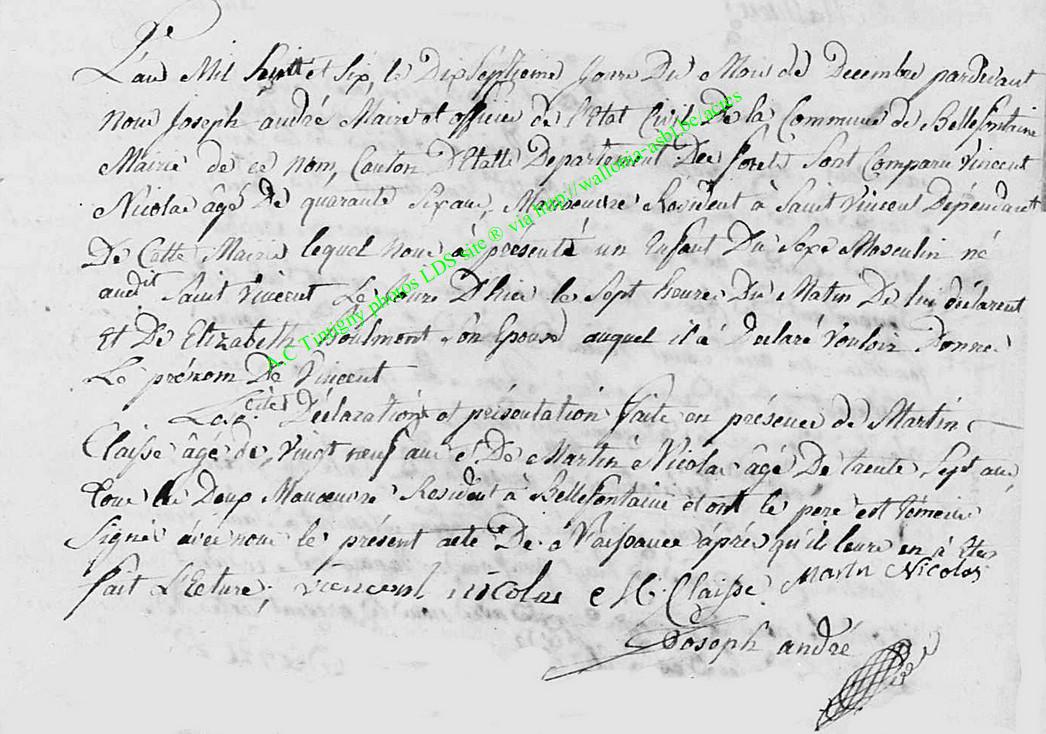 L'an Mil huit et six, le Dix Septieme Jour Du Mois de Decembre pardevant
nous Joseph andré Maire et officier de l'Etat Civil De la Commune de Bellefontaine
Mairie de ce nom, Canton D'Etalle Departement Des forets Sont Comparu Vincent
Nicolas âgé De quarante Six ans, Manoeuvre Resident à Saint Vincent Dépendant
De Cette Mairie lequel nous à présenté un Enfant Du Sexe Masculin né
audit Saint Vincent Le Jours D'hier le Sept heures Du Matin De lui déclarant
et De Elizabeth Son Epouse auquel il à Declaré Vouloir Donner
Le prénom De Vincent
Les dites Déclarations et présentation faite en présence de Martin
Claisse âgé de Vingt neuf ans et De Martin Nicolas âgé De trente Sept ans
tous les Deux Manoeuvre Resident à Bellefontaine et ont le pere est témoins
Signés avec nous le présent acte De Naissance après qu'il leurs en à Eté
fait L'Ecture. Viencent nicolas Claisse Martn Nicolas
Joseph andré
A.C Tintigny photos LDS site ® via http://wallonia-asbl.be/actes